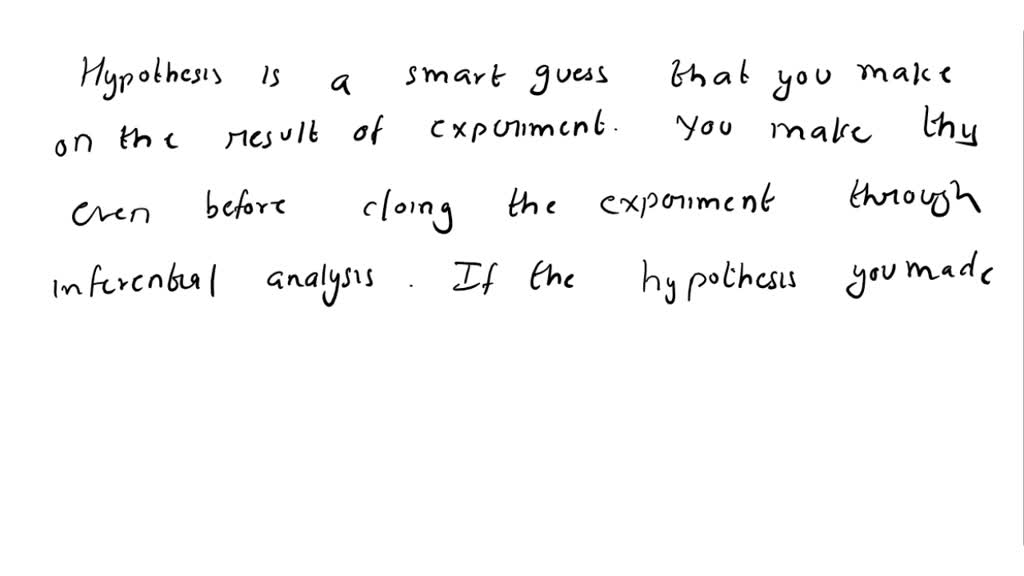 Hypothesis is a smart guess that you make
on the result of experiment. You make thy
even before doing the experiment through
inferential analysis. If the hypothesis you made